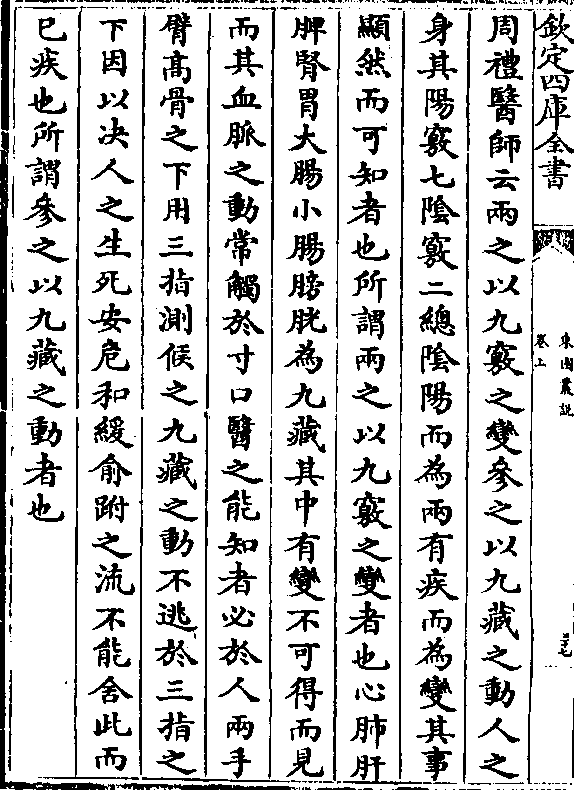 欽定四庫全書
東園叢説
卷上
周禮醫師云兩之以九竅之變參之以九藏之動人之
身其陽竅七陰竅二總陰陽而為兩有疾而為變其事
顯然而可知者也所謂兩之以九竅之變者也心肺肝
脾腎胃大腸小腸膀胱為九藏其中有變不可得而見
而其血脈之動常觸於寸口醫之能知者必於人兩手
臂髙骨之下用三指測候之九藏之動不逃於三指之
下因以决人之生死安危和緩俞跗之流不能舍此而
巳疾也所謂參之以九藏之動者也